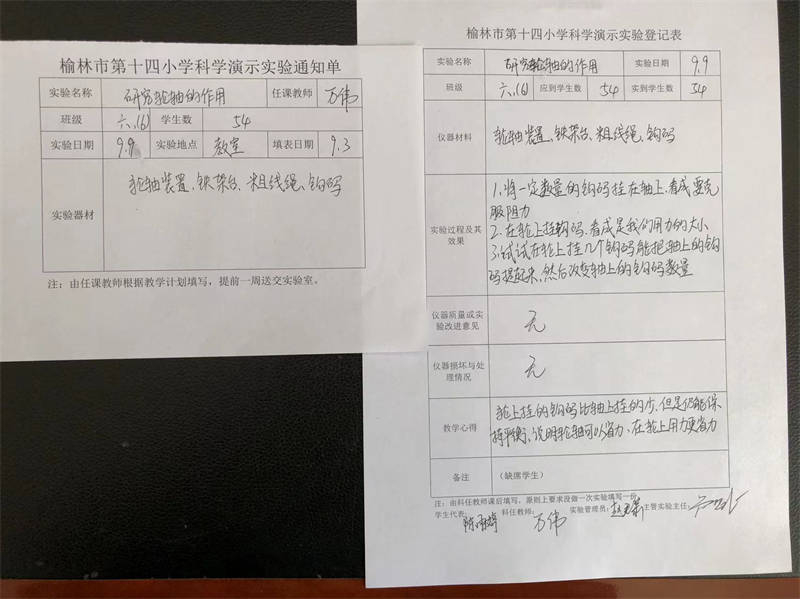 榆林市第十四小学科学演示实验通知单
实验名称 研究轮轴的作用 任课教师 万伟
班级 六.(6) 学生数 54
实验日期 9.9 实验地点 教室 填表日期 9.3
实验器材 轮轴装置、铁架台、粗线绳、钩码
注:由任课教师根据教学计划填写,提前一周送交实验室。
榆林市第十四小学科学演示实验登记表
实验名称 研究轮轴的作用 实验日期 9.9
班级 六.(6) 应到学生数 54 实到学生数 54
仪器材料 轮轴装置、铁架台、粗线绳、钩码
实验过程及其效果
1.将一定数量的钩码挂在轴上、看成要克
服阻力
2.在轮上挂钩码、看成是我们用力的大小
3.试试在轮上挂几个钩码能把轴上的钩
码提起来,然后改变轴上的钩码数量
仪器质量或实验改进意见 无
仪器损坏与处理情况 无
教学心得
轮上挂的钩码比轴上挂的少,但是仍能保
持平衡、说明轮轴可以省力、在轮上用力更省力
备注 (缺席学生)
注:由科任教师课后填写,原则上要求没做一次实验填写一份
学生代表: 科任教师: 万伟 实验管理员: 主管实验主任: